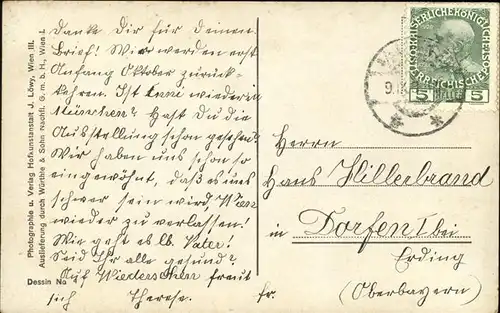 Photographie u. Verlag Hofkunstanstalt J. Löwy, Wien III.
Auslieferung durch Würthle & Sohn Nachfl. G. m. b. H., Wien I.
Danke Dir für deinen
Brief! Wir werden erst
Anfang Oktober zurück-
kehren. Ist Anni wieder in
München? Hast Du die
Ausstellung schon gesehen?
Wir haben uns schon so
eingewöhnt, daß es uns
schwer sein wird, Wien
wieder zu verlassen!
Wie geht es lb. Vater?
Seid Ihr alle gesund?
Auf Wiedersehen freut
sich Therese.
Dessin No
5 5
Herrn
Hans Hillerbrand
in Dorfen bei
Erding
(Oberbayern)
fr.